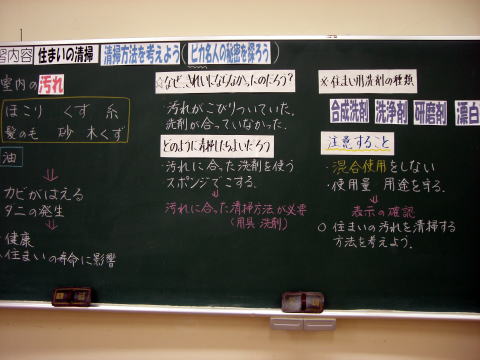 習内容 住まいの清掃 清掃方法を考えよう ピカ名人の秘密を探ろう
室内の汚れ
ほこり くず 糸
髪の毛 砂 木くず
油
カビがはえる
ダニの発生
・健康
・住まいの寿命に影響
☆なぜ、きれいにならなかったのだろう?
・汚れがこびりついていた。
・洗剤が合っていなかった。
どのように清掃したらよいだろう
・汚れに合った洗剤を使う
・スポンジでこする。
汚れに合った清掃方法が必要
(用具 洗剤)
※住まい用洗剤の種類
合成洗剤 洗浄剤 研磨剤 漂白
注意すること
・混合使用をしない
・使用量 用途を守る。
表示の確認
○住まいの汚れを清掃する
方法を考えよう。